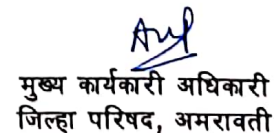 मुख्य कार्यकारी अधिकारी
जिल्हा परिषद, अमरावती